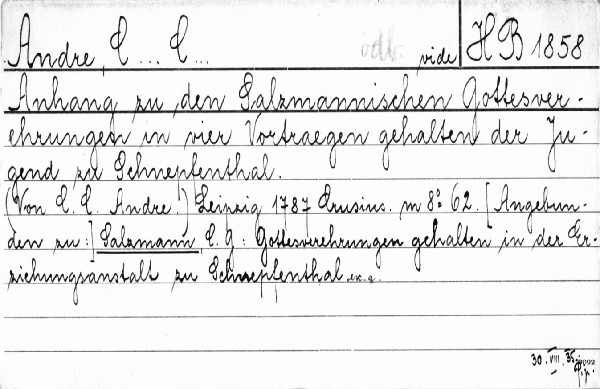 Andre, C... C... vide H B 1858
Anhang zu den Salzmannischen Gottesver-
ehrungen in vier Vortraegen gehalten der Ju-
gend zu Schnepfenthal.
(Von C. C. Andre.) Leipzig 1787 Crusius. m 8° 62. [Angebun-
den zu:] Salzmann, C. G.: Gottesverehrungen gehalten in der Er-
ziehungsanstalt zu Schnepfenthal. ex. a.
30. VIII. 35.